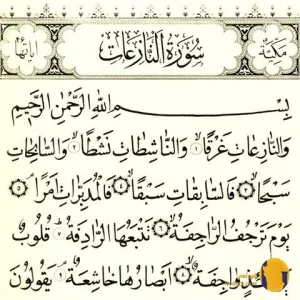 مكية سورة النازعات آياتها ٤٦
بِسْمِ اللَّهِ الرَّحْمَٰنِ الرَّحِيمِ
وَالنَّازِعَاتِ غَرْقًا ۝١ وَالنَّاشِطَاتِ نَشْطًا ۝٢ وَالسَّابِحَاتِ
سَبْحًا ۝٣ فَالسَّابِقَاتِ سَبْقًا ۝٤ فَالْمُدَبِّرَاتِ أَمْرًا ۝٥
يَوْمَ تَرْجُفُ الرَّاجِفَةُ ۝٦ تَتْبَعُهَا الرَّادِفَةُ ۝٧ قُلُوبٌ
يَوْمَئِذٍ وَاجِفَةٌ ۝٨ أَبْصَارُهَا خَاشِعَةٌ ۝٩ يَقُولُونَ